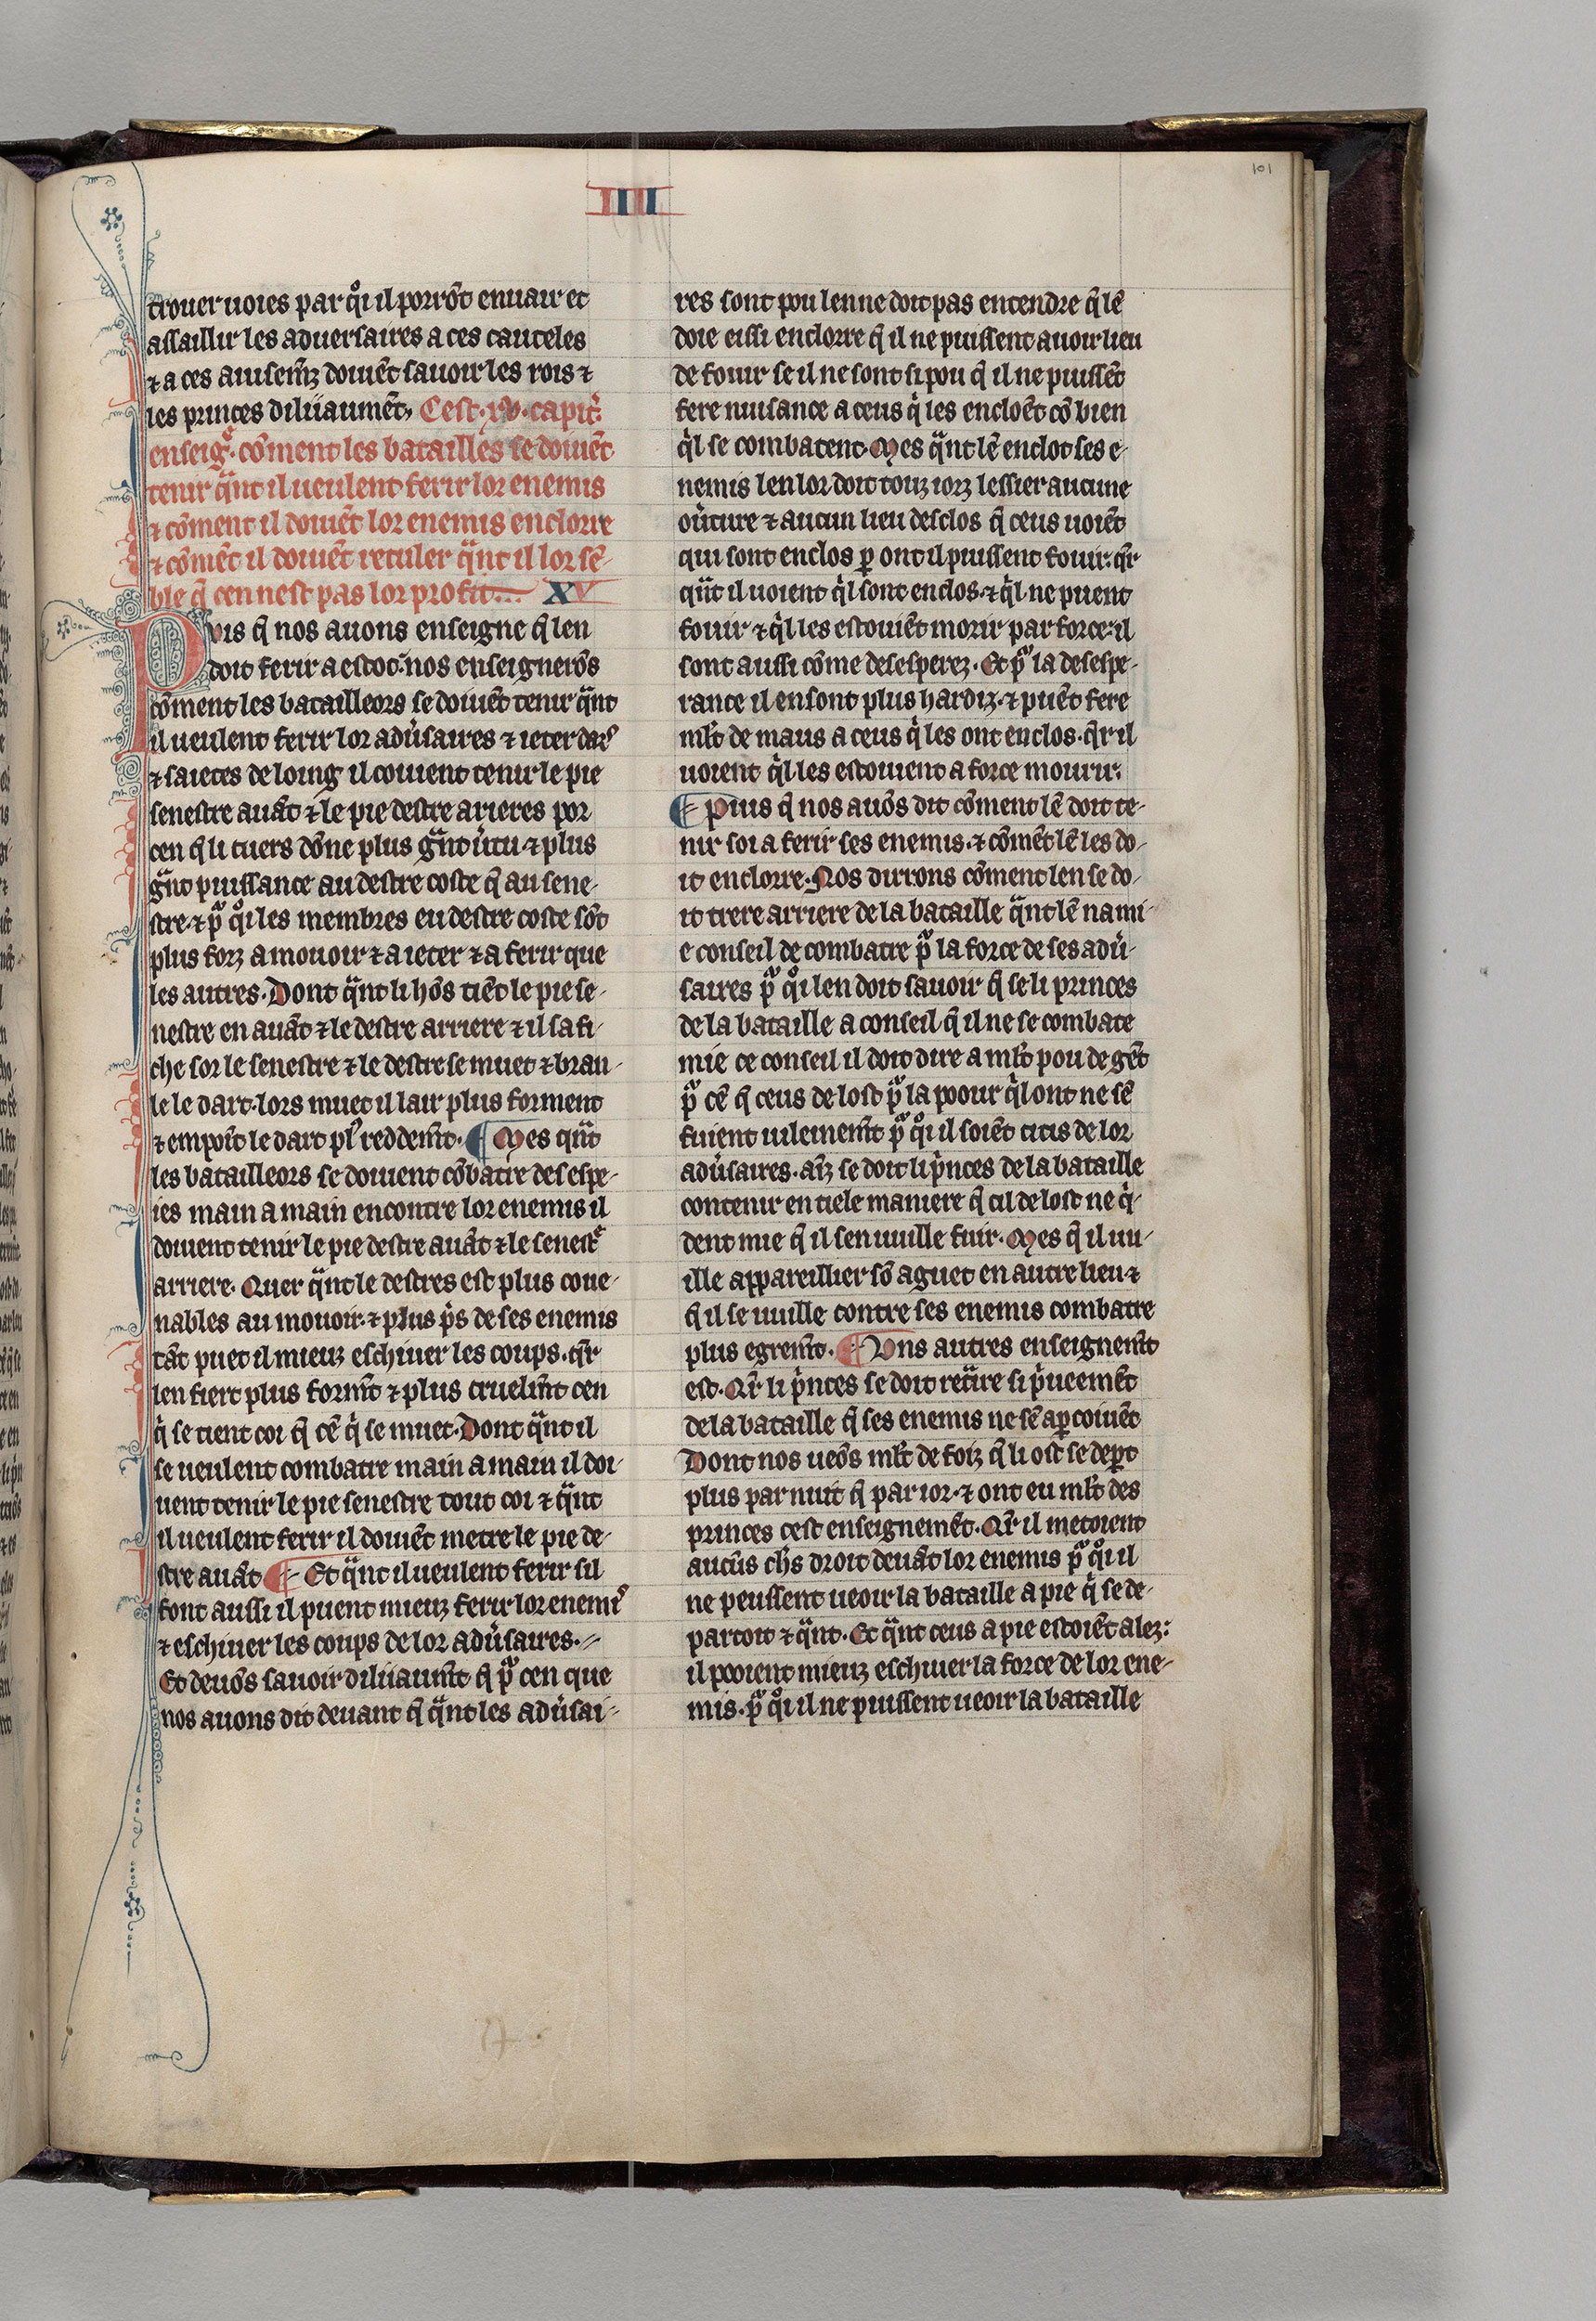 101
IIII
trouer uoies par qͦi il porrōt enuair et
assaillir les aduersaires a ces cauteles
⁊ a ces auisemz̄ doiuēt sauoir les rois ⁊
les princes diliiaumēt. Cest .xv. capit̄.
enseig̾. cōment les batailles se doiuēt
tenir qᷓnt il ueulent ferir lor enemis
⁊ cōment il doiuēt lor enemis enclorre
⁊ cōmēt il doiuēt reculer qᷓnt il lor sē-
ble q̄ cen nest pas lor profit.... XV
Puis q̄ nos auons enseigne q̄ len
doit ferir a estoc. nos enseignerōs
cōment les batailleors se doiuēt tenir qᷓnt
il ueulent ferir lor adūsaires ⁊ ieter darˢ
⁊ saietes de loing il couient tenir le pie
senestre auāt ⁊ le pie destre arieres por
cen q̄ li tuers dōne plus gᷓnt u̇tu ⁊ plus
gᷓnt puissance au destre coste q̄ au sene-
stre. ⁊ pᷓ qͦi les membres eu destre coste sōt
plus forz a mouoir ⁊ a ieter ⁊ a ferir que
les autres. Dont qᷓnt li hōs tiēt le pie se-
nestre en auāt ⁊ le destre arriere ⁊ il sa fi-
che sor le senestre ⁊ le destre se muet ⁊ bran-
le le dart. lors muet il lair plus forment
⁊ emport̄ le dart plˢ reddem̄t. ¶ Mes qᷓnt
les batailleors se doiuent cōbatre des espe-
ies main a main encontre lor enemis il
doiuent tenir le pie destre auāt ⁊ le senestᵉ
arriere. Quer qᷓnt le destres est plus coue-
nables au mouoir. ⁊ plus pͥs de ses enemis
tāt puet il mieuz eschiuer les coups. q̄r
len fiert plus form̄t ⁊ plus cruelm̄t cen
qͥ se tient coi q̄ cē qͥ se muet. Dont qᷓnt il
se ueulent combatre main a main il doi-
uent tenir le pie senestre tout coi ⁊ qᷓnt
il ueulent ferir il doiuēt metre le pie de-
stre auāt ¶ Et qᷓnt il ueulent ferir sil
font aussi il puent mieuz ferir lor enemiˢ
⁊ eschiuer les coups de lor adūsaires.
Et deuōs sauoir diliiaum̄t q̄ pᷓ cen que
nos auons dit deuant q̄ qᷓnt les adūsai-
res sont pou len ne doit pas entendre q̄ lē
doie eissi enclorre q̄ il ne puissent auoir lieu
de fouir se il ne sont si pou q̄ il ne puissēt
fere nuisance a ceus qͥ les encloēt cō bien
qͥl se combatent. Mes qᷓnt lē enclot ses e-
nemis len lor doit touz iorz lessier aucune
oūture ⁊ aucun lieu desclos q̄ ceus uoiēt
qui sont enclos ꝑ ont il puissent fouir. q̄r
qᷓnt il uoient qͥl sont enclos. ⁊ qͥl ne puent
fouir ⁊ qͥl les estouiēt morir par force. il
sont aussi cōme desesperez. Et pᷓ la desespe-
rance il en sont plus hardiz. ⁊ puēt fere
ml̄t de maus a ceus qͥ les ont enclos. q̄r il
uoient qͥl les estouient a force mourir.
¶ Puis q̄ nos auōs dit cōment lē doit te-
nir soi a ferir ses enemis. ⁊ cōmēt lē les do-
it enclorre. Nos dirrons cōment len se do-
it trere arriere de la bataille qᷓnt lē na mi-
e conseil de combatre pᷓ la force de ses adū-
saires pᷓ qͦi len doit sauoir q̄ se li princes
de la bataille a conseil q̄ il ne se combate
mie ce conseil il doit dire a ml̄t pou de gēt
pᷓ cē q̄ ceus de lost pᷓ la poour qͥl ont ne sē
fuient uilenem̄t pᷓ qͦi il soiēt ocis de lor
adūsaires. aīz se doit li pͥnces de la bataille
contenir en tiele maniere q̄ cil de lost ne qͥ-
dent mie q̄ il sen uuille fuir. Mes q̄ il uu-
ille appareillier sō aguet en autre lieu ⁊
q̄ il se uuille contre ses enemis combatre
plus egrem̄t. ¶ Uns autres enseignem̄t
est. Q̄r li pͥnces se doit retᷓire si pͥueemēt
de la bataille q̄ ses enemis ne sē aꝑcoiuēt
Dont nos ueōs ml̄t de foiz q̄ li ost se deꝑt
plus par nuit q̄ par ior. ⁊ ont eu ml̄t des
princes cest enseignemēt. Q̄r il metoient
aucūs ch̄rs droit deuāt lor enemis pᷓ qͦi il
ne peussent ueoir la bataille a pie qͥ se de-
partoit ⁊ qᷓnt. Et qᷓnt ceus a pie estoiēt alez:
il pooient mieuz eschiuer la force de lor ene-
mis. pᷓ qͦi il ne puissent ueoir la bataille